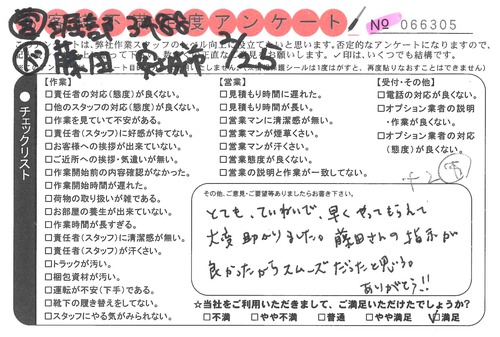 客様不満足度アンケート
№ 066305
藤田
2/25
チェックリスト
【作業】
□責任者の対応(態度)が良くない。
□他のスタッフの対応(態度)が良くない。
□作業を見ていて不安がある。
□責任者(スタッフ)に好感が持てない。
□お客様への挨拶が出来ていない。
□ご近所への挨拶・気遣いが無い。
□作業開始前の内容確認がなかった。
□作業開始時間が遅れた。
□荷物の取り扱いが雑である。
□お部屋の養生が出来ていない。
□作業時間が長すぎる。
□責任者(スタッフ)に清潔感が無い。
□責任者(スタッフ)が汗くさい。
□トラックが汚い。
□梱包資材が汚い。
□運転が不安(下手)である。
□靴下の履き替えをしてない。
□スタッフにやる気がみられない。
【営業】
□見積もり時間に遅れた。
□見積もり時間が長い。
□営業マンに清潔感が無い。
□営業マンが煙草くさい。
□営業マンが汗くさい。
□営業態度が良くない。
□営業の説明と作業が一致してない。
【受付・その他】
□電話の対応が良くない。
□オプション業者の説明
・作業が良くない。
□オプション業者の対応
(態度)が良くない。
その他、ご意見・ご要望等ありましたらお書き下さい。
とても、ていねいで、早くやってもらえて
大変助かりました。藤田さんの指示が
良かったからスムーズだったと思う。
ありがとう!!
☆当社をご利用いただきまして、ご満足いただけたでしょうか?
□不満 □やや不満 □普通 □やや満足 ☑満足